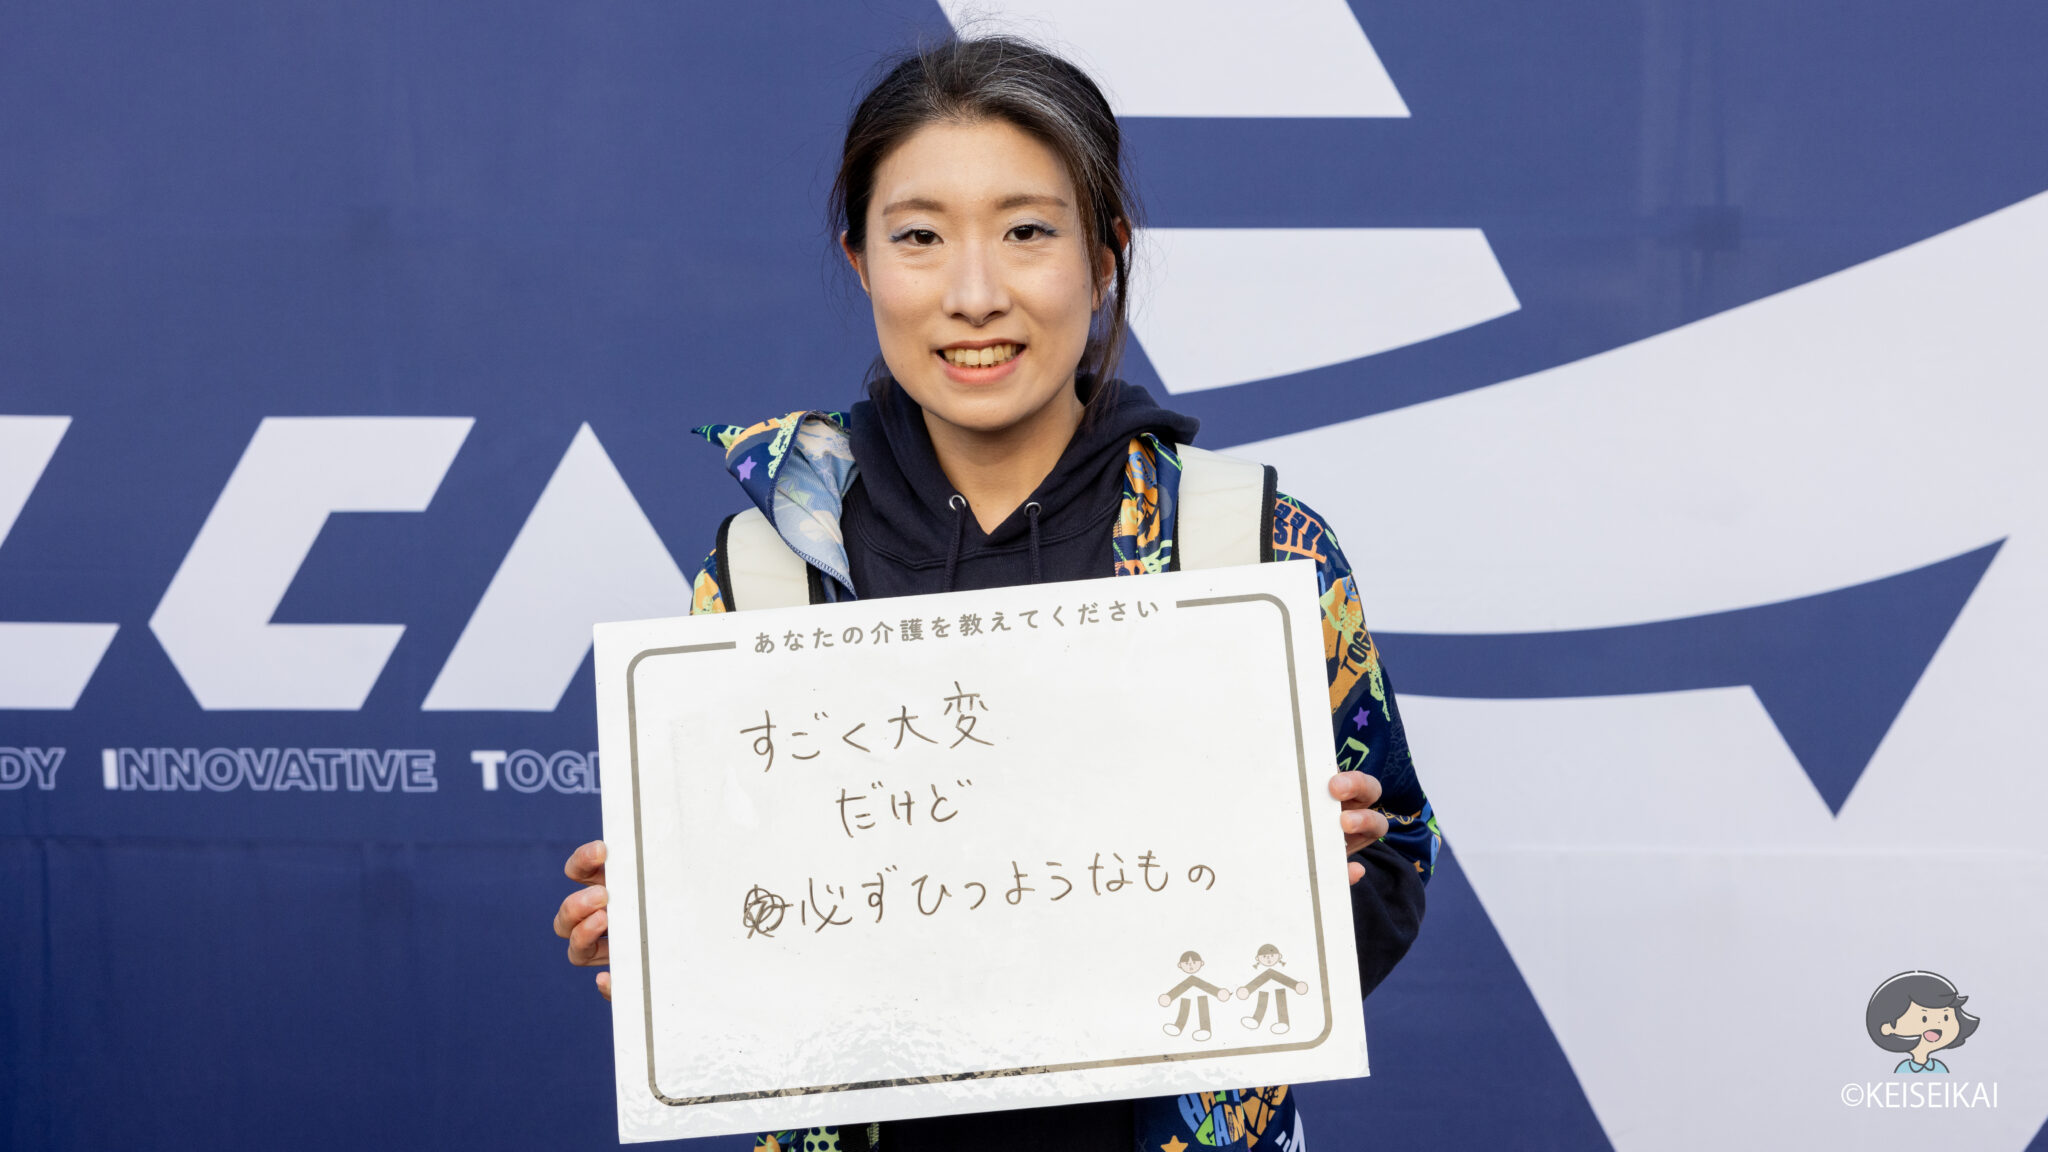 LCA
DY INNOVATIVE TOGE
あなたの介護を教えてください
すごく大変
だけど
必ずひつようなもの
©KEISEIKAI